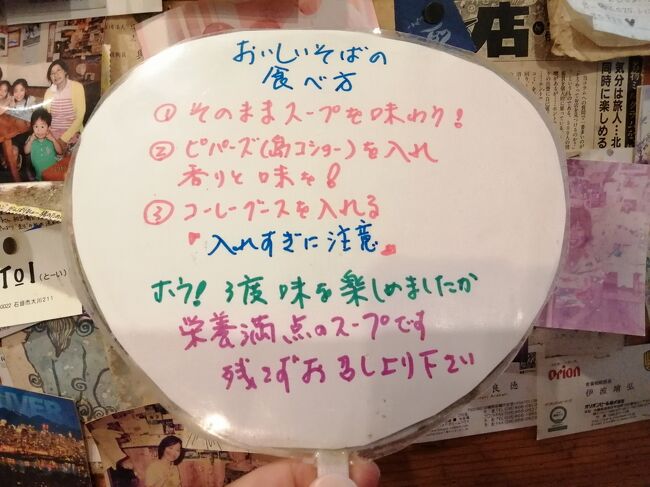 おいしいそばの
食べ方
① そのままスープを味わう!
② ピパーズ(島コショー)を入れ
香りと味を!
③ コーレーグースを入れる
"入れすぎに注意"
ホウ! 3度味を楽しめましたか
栄養満点のスープです
残さずお召し上り下さい
店
気分は旅人…北
同時に楽しめる
TOI (とーい)
0022 石垣市大川211
VER
良徳
Orion
伊波靖弘